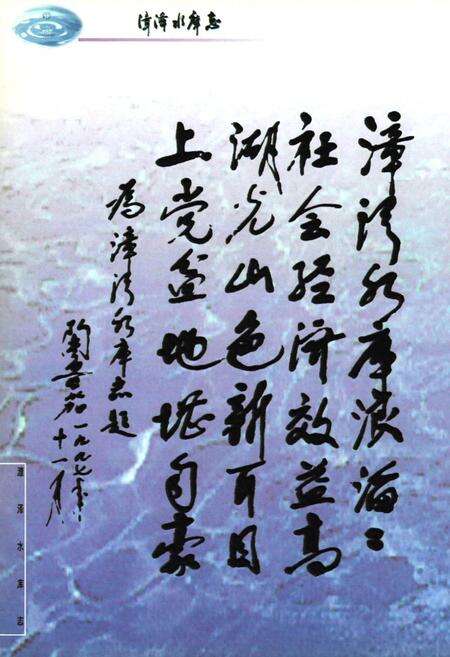 漳泽水库志
漳泽水库浪滔々
社会经济效益高
湖光山色新耳目
上党盆地堪自豪
为漳泽水库志题
陶鲁笳一九九七年
十一月
漳泽水库志